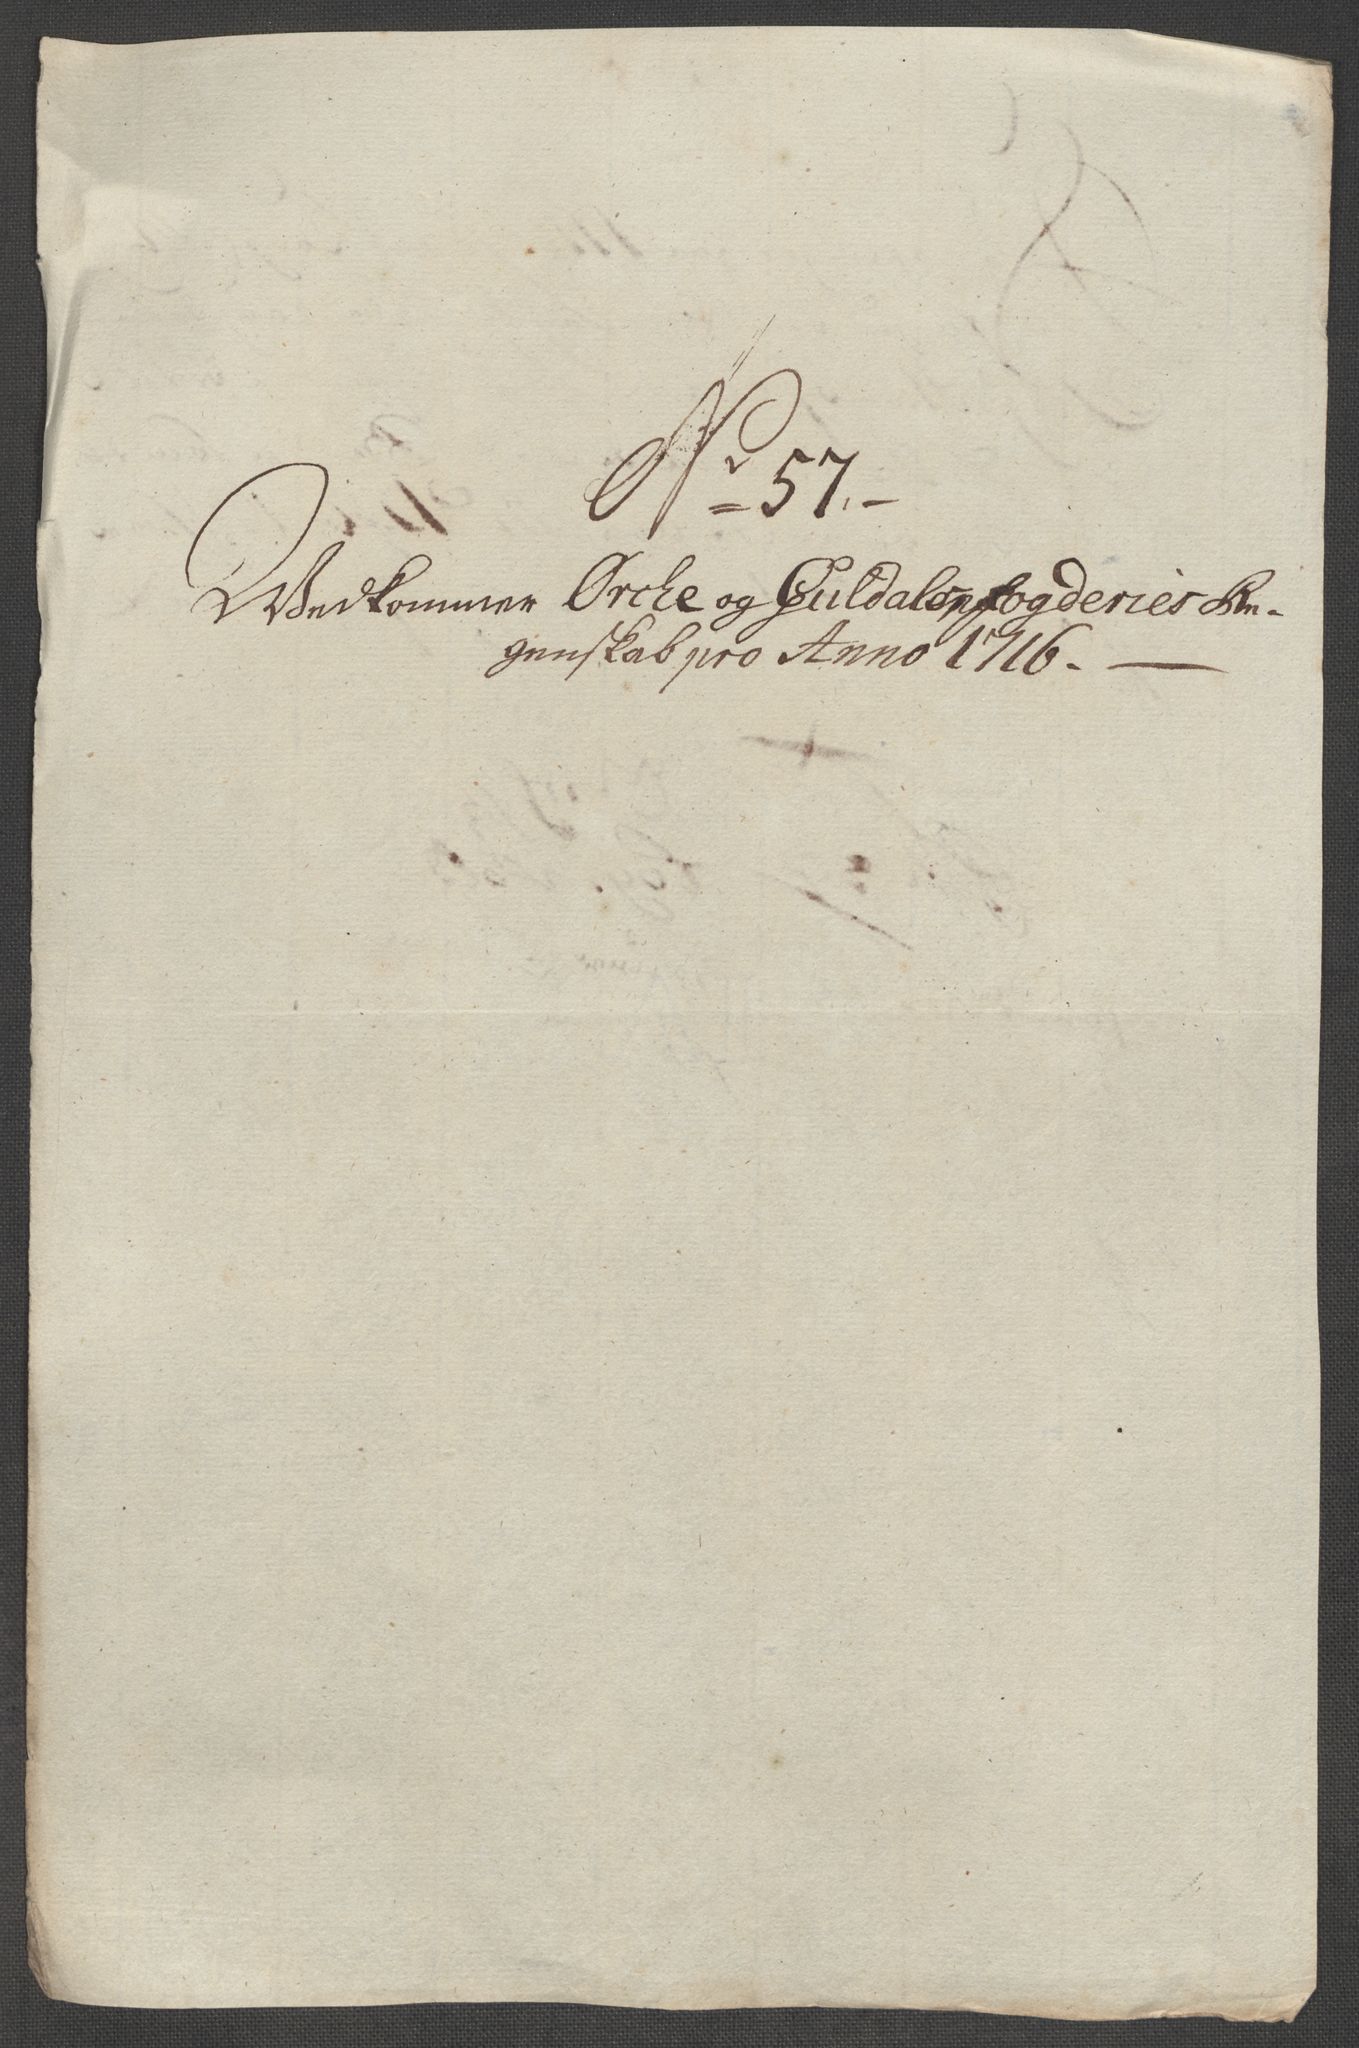 No 57.-
Vedkommer Örche og Guldals fogderies Re-
genskab pro Anno 1716. —